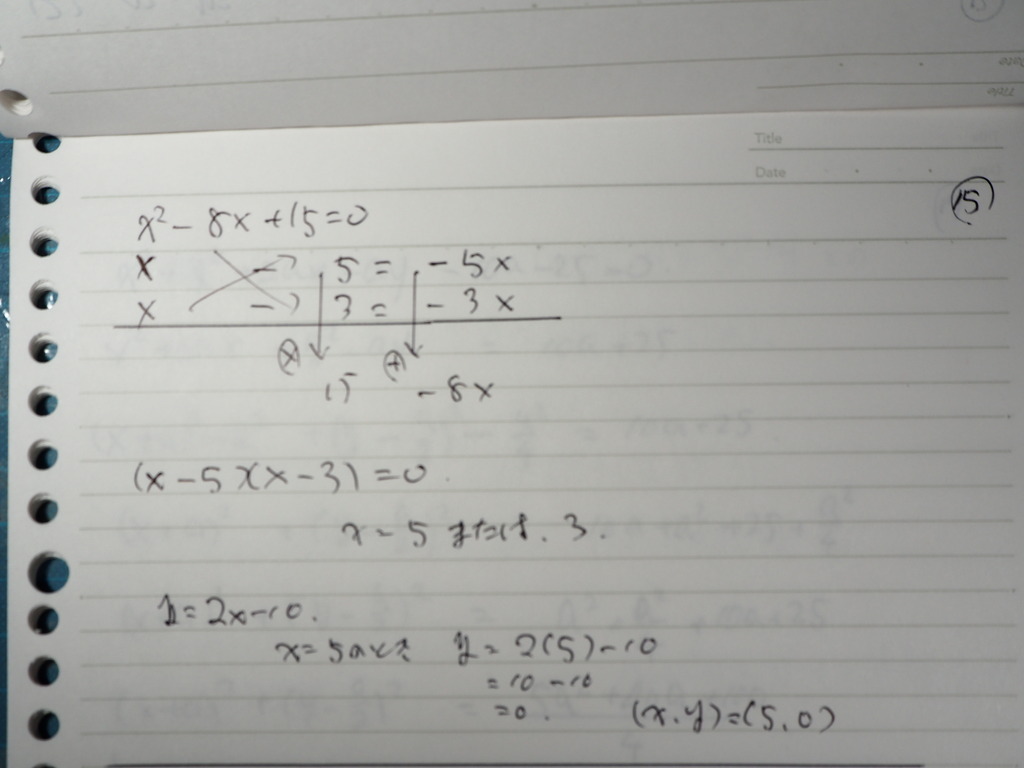 Title
Date
⑮
x² - 8x + 15 = 0
x - 5 = - 5x
x - 3 = - 3x
⊗ ⊕
15 - 8x
(x - 5)(x - 3) = 0.
x = 5 または. 3.
y = 2x - 10.
x = 5のとき y = 2(5) - 10
= 10 - 10
= 0. (x.y) = (5.0)